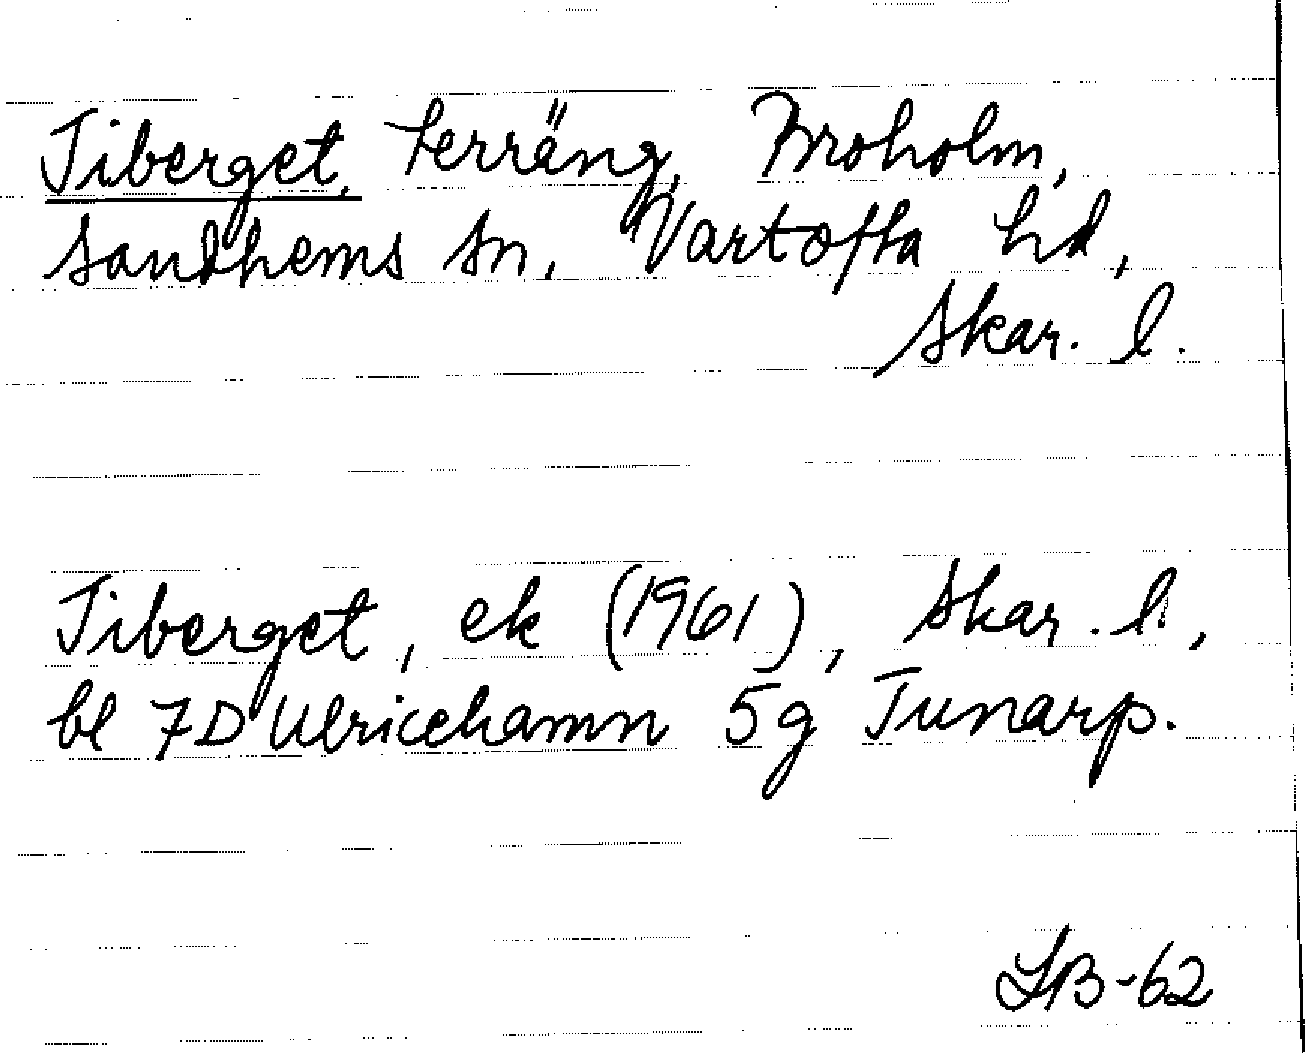 Tiberget, terräng, Broholm,
Sandhems sn, Vartofta hd,
Skar. l.
Tiberget, ek (1961), Skar. l.,
bl 7D Ulricehamn 5g Tunarp.
LB-62